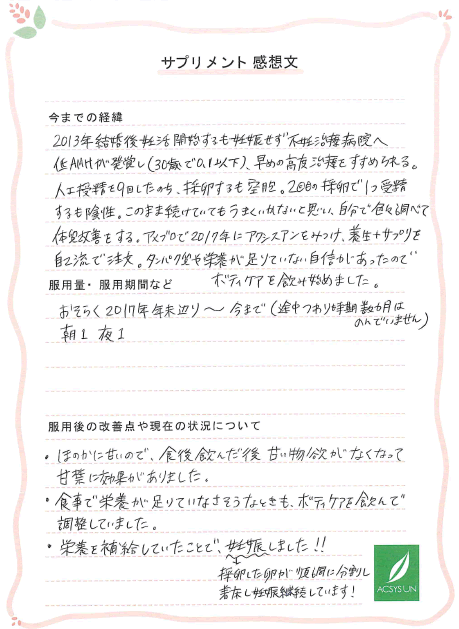 サプリメント 感想文
今までの経緯
2013年結婚後妊活開始するも妊娠せず不妊治療病院へ
低AMHが発覚し(30歳で0.1以下)、早めの高度治療をすすめられる。
人工授精を9回したのち、採卵するも空胞。2回目の採卵で1つ受精
するも陰性。このまま続けていてもうまくいかないと思い、自分で色々調べて
体質改善をする。アメブロで2017年にアクシスアンをみつけ、養生+サプリを
自己流で注文。タンパク質や栄養が足りていない自信があったので
ボディケアを飲み始めました。
服用量・服用期間など
おそらく2017年年末辺り〜今まで(途中つわり時期数カ月は
のんでいません)
朝1 夜1
服用後の改善点や現在の状況について
・ほのかに甘いので、食後飲んだ後甘い物欲がなくなって
甘葉に効果がありました。
・食事で栄養が足りていなさそうなときも、ボディケアを飲んで
調整していました。
・栄養を補給していたことで、妊娠しました!!
採卵した卵が順調に分割し
着床し妊娠継続しています!
ACSYSUN